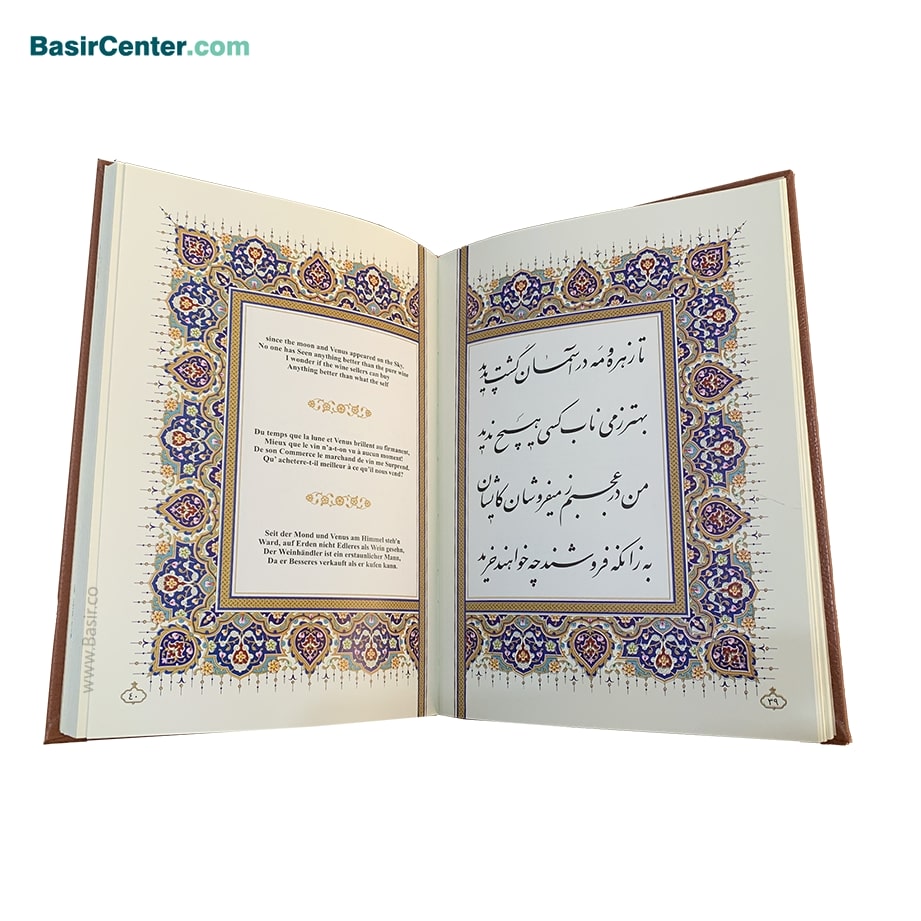 BasirCenter.com
since the moon and Venus appeared on the Sky.
No one has Seen anything better than the pure wine
I wonder if the wine sellers can buy
Anything better than what the self
Du temps que la lune et Venus brillent au firmanent,
Mieux que le vin n'a-t-on vu à aucun moment!
De son Commerce le marchand de vin me Surprend,
Qu' achetere-t-il meilleur à ce qu'il nous vend?
Seit der Mond und Venus am Himmel steh'n
Ward, auf Erden nicht Edleres als Wein gesehn,
Der Weinhändler ist ein erstaunlicher Mann,
Da er Besseres verkauft als er kufen kann.
www.Basir.co
٤٠
تا زهره و مه در آسمان گشت پدید
بهتر ز می ناب کسی هیچ ندید
من در عجبم ز میفروشان کایشان
به زانکه فروشند چه خواهند خرید
۳۹